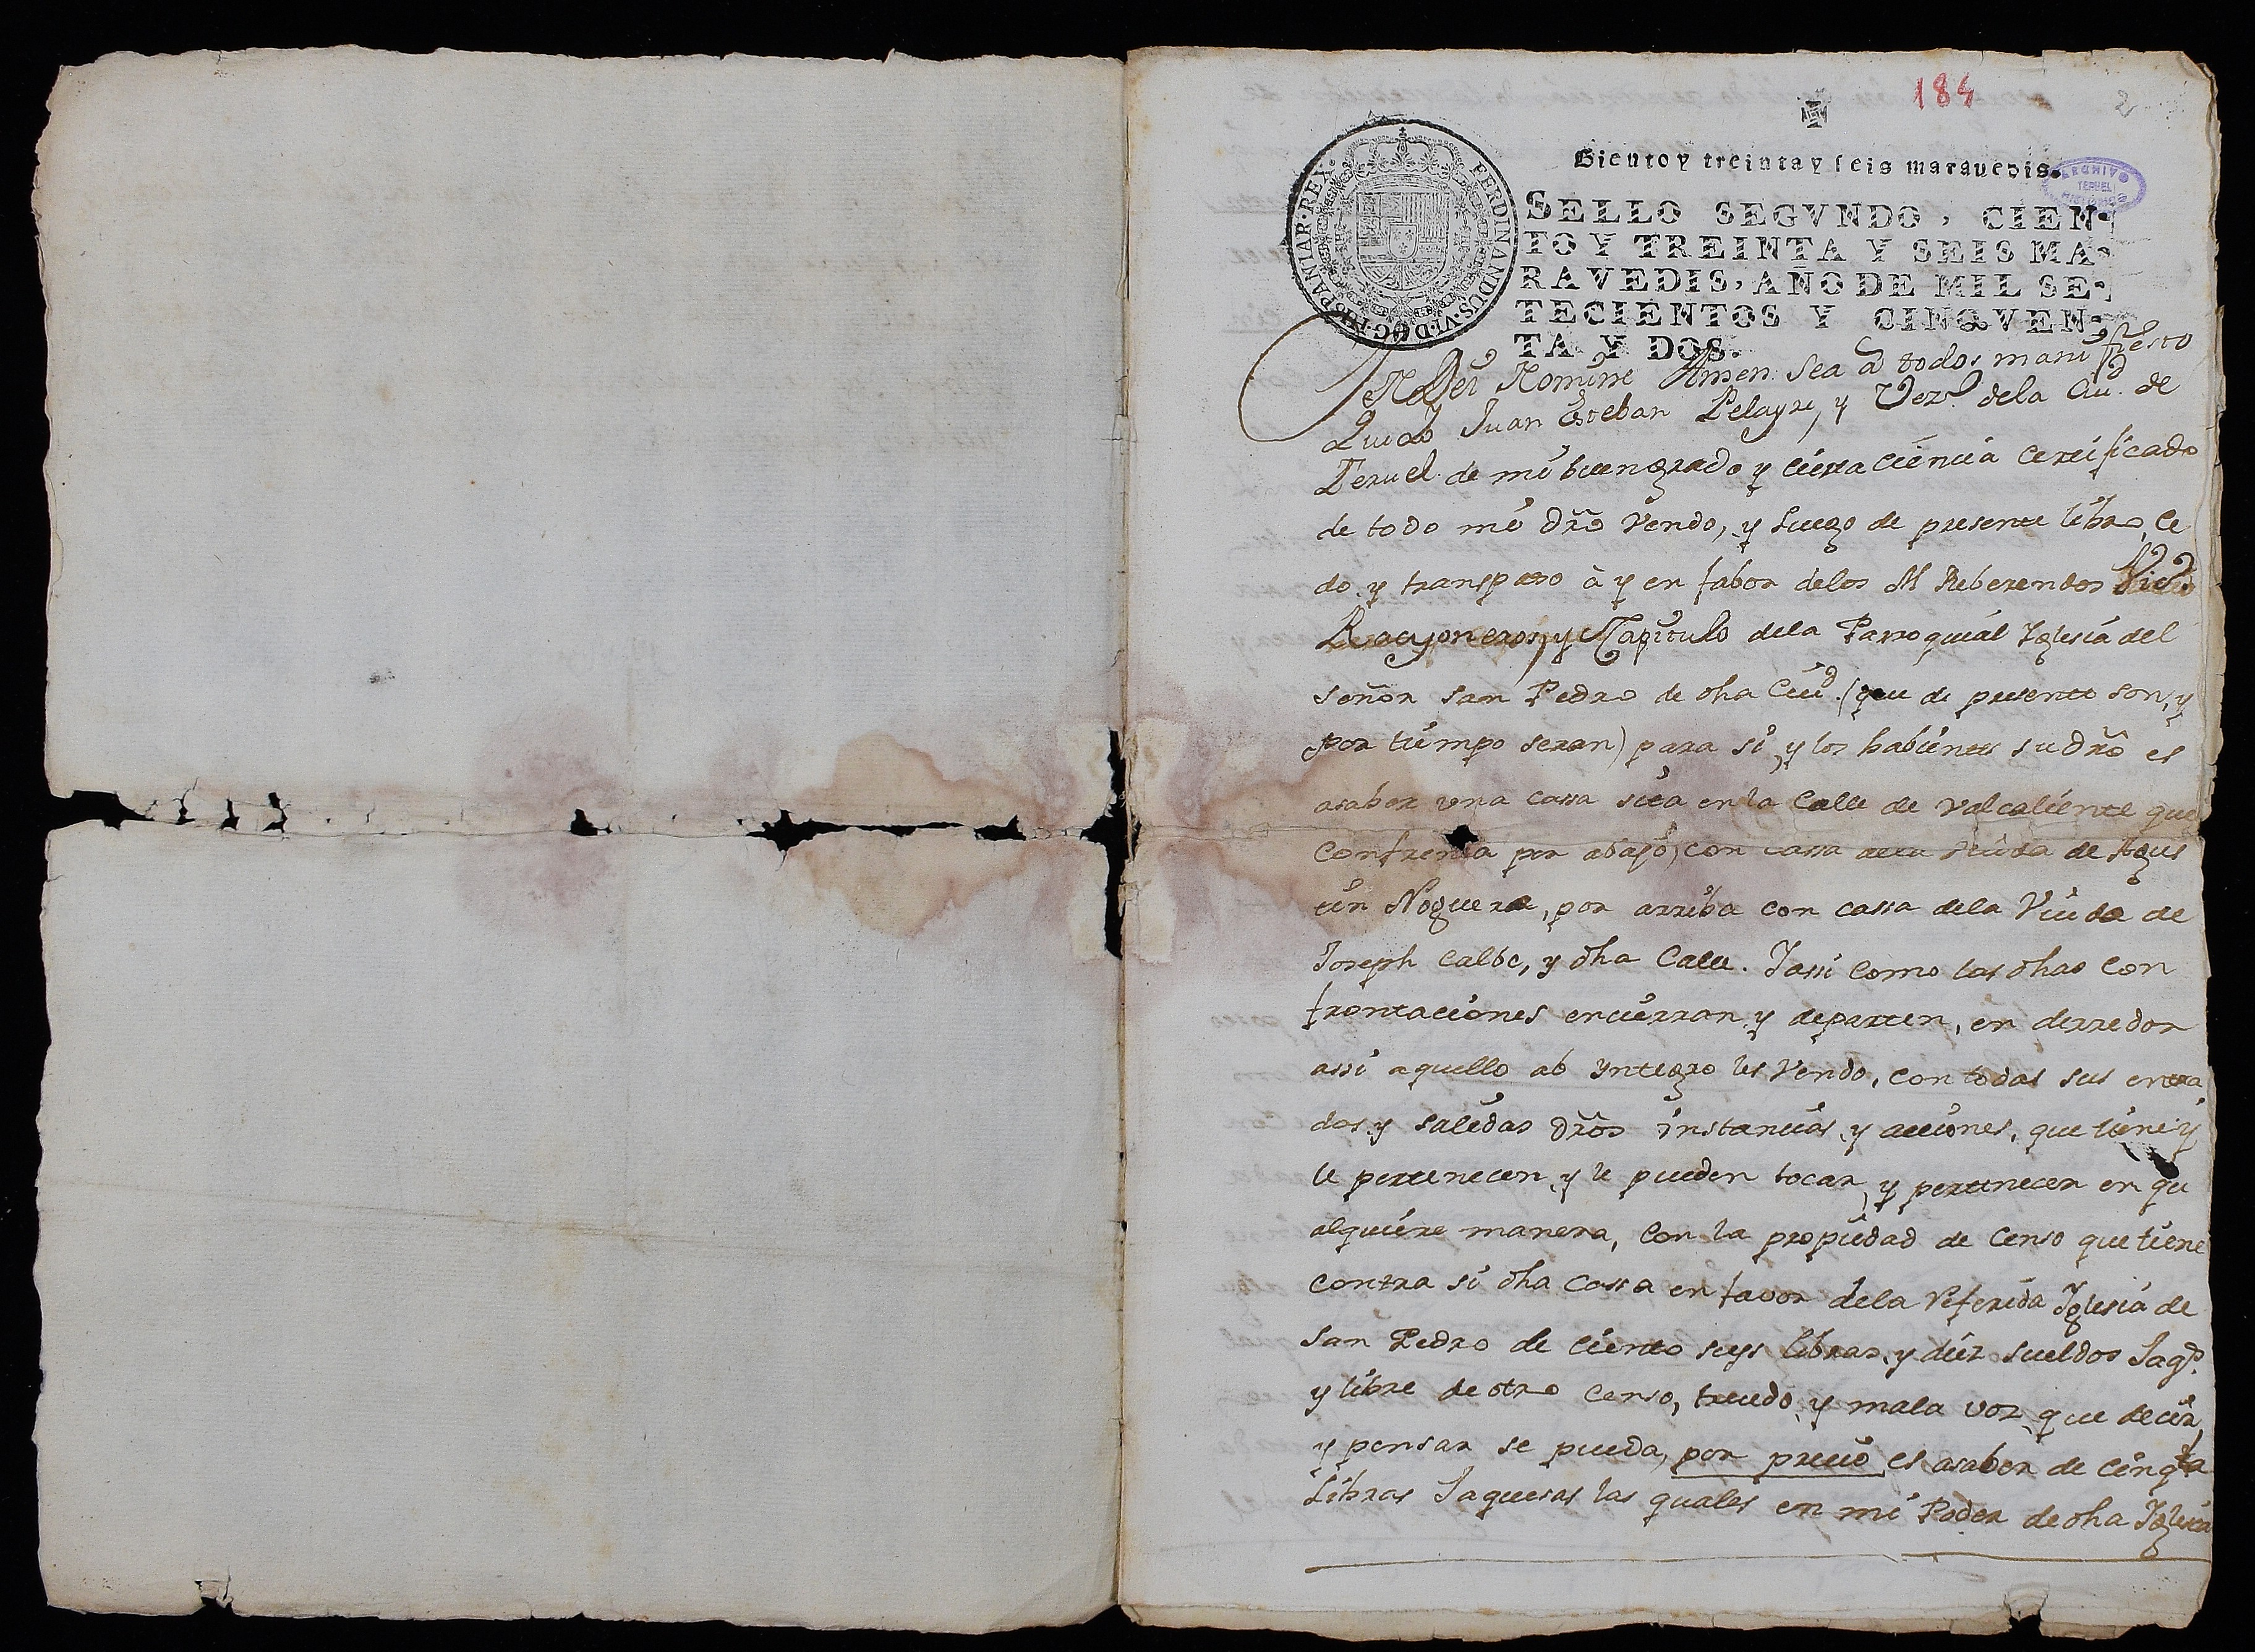 184
2
Ciento y treinta y seis maravedis.
ARCHIVO
TERUEL
HISTORICO
FERDINANDUS·VI·D·G·HISPANIAR·REX·
SELLO SEGVNDO, CIEN-
TO Y TREINTA Y SEIS MA-
RAVEDIS, AÑO DE MIL SE-
TECIENTOS Y CINQVEN-
TA Y DOS.
IN Dei Nomine Amen sea a todos manifiesto
Que Yo Juan Esteban Pelayre, y Vezº. dela Ciud. de
Teruel de mi buen grado y cierta ciencia certificado
de todo mi dr̃o Vendo, y luego de presente libro, ce
do, y transpaso à y en fabor delos M Reberendos
Racyoneros, y Capitulo dela Parroquial Iglesia del
señor san Pedro de dha Ciud. (que de presente son, y
por tiempo seran) para si, y los habientes su dr̃o es
asaber vna cassa sita en la Calle de valcaliente que
confrenta por abajo, con cassa dela viuda de Agus
tin Noguera, por arriba con cassa dela Viuda de
Joseph Calbo, y dha Calle. Y assi como las dhas con
frontaciones encierran, y departen, en derredor
assi aquello ab yntegro les Vendo, con todas sus entra
das, y salidas dr̃os instancias, y acciones, que tiene y
le pertenecen, y le pueden tocar, y pertenecer en qu
alquiere manera, con la propiedad de Censo que tiene
contra si dha cassa en favor dela Referida Iglesia de
san Pedro de ciento seys libras, y diez sueldos Jags.
y libre de otro Censo, treudo, y mala voz, que decir,
y pensar se pueda, por precio es asaber de cinqta
Libras Jaquesas las quales en mi Poder de dha Iglesia